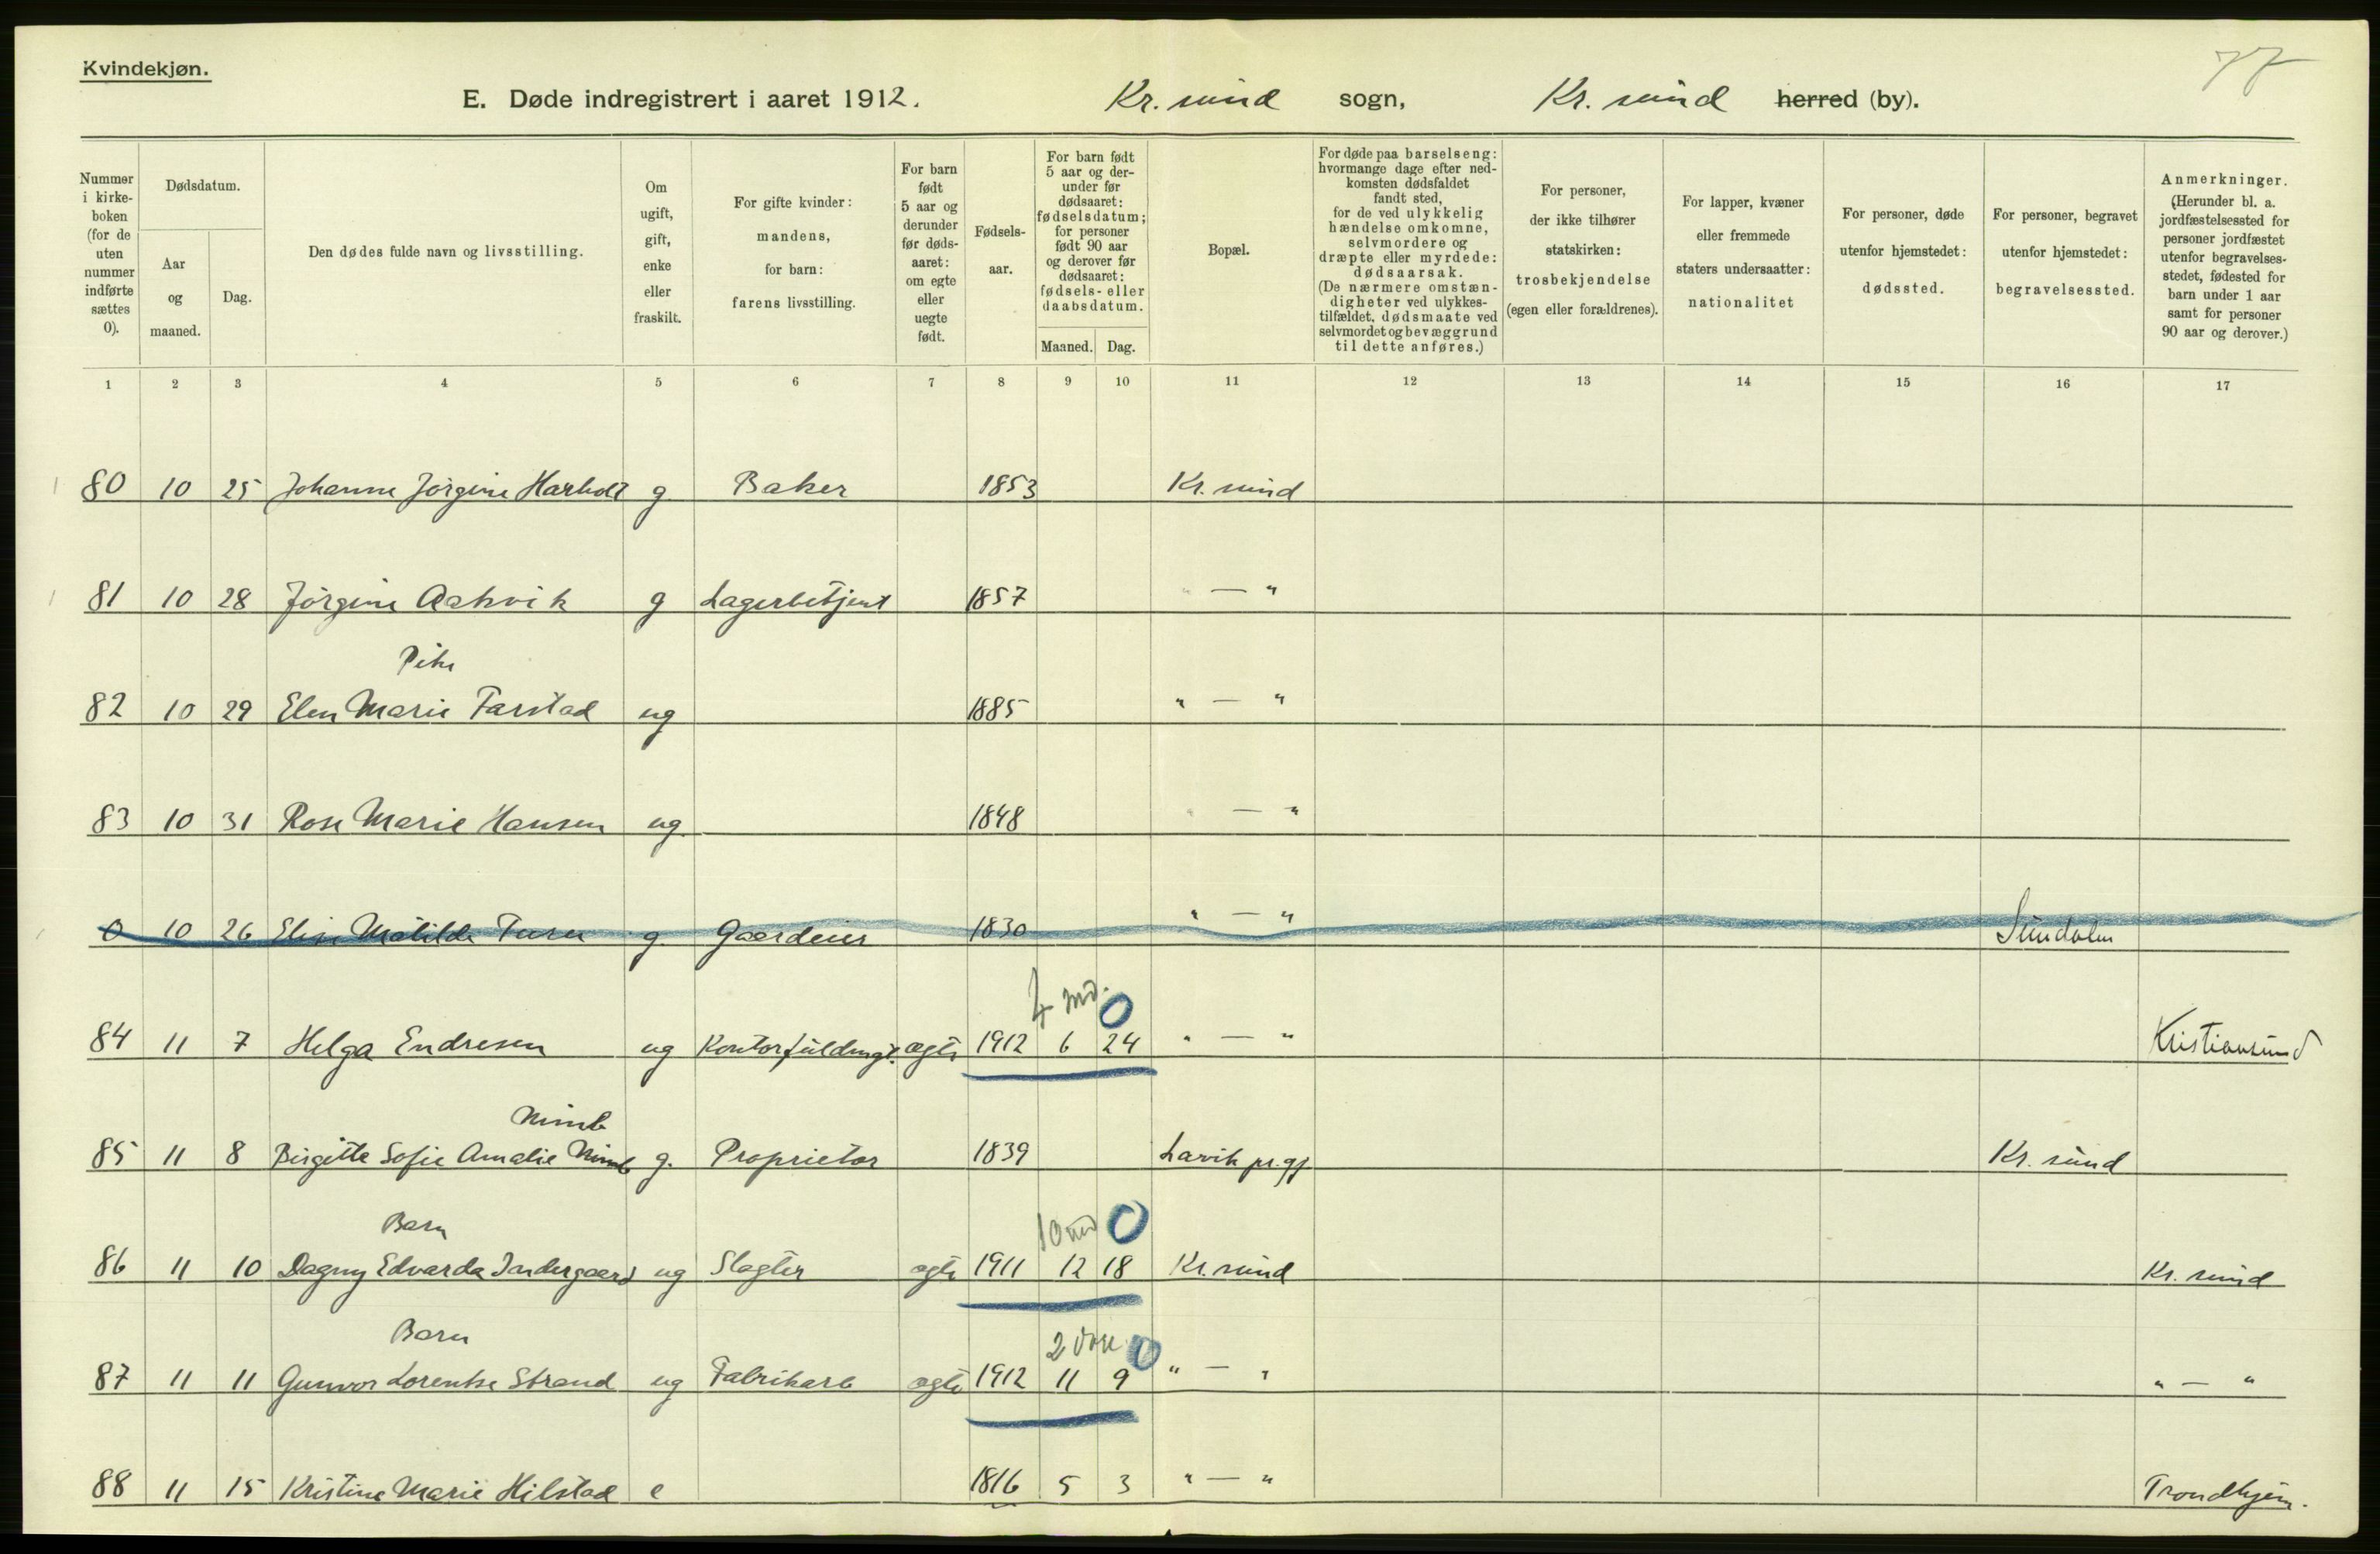 77
Kvindekjøn.
E. Døde indregistrert i aaret 1912. Kr. sund sogn, Kr. sund herred (by).
Nummer i kirke-boken (for de uten nummer indførte sættes 0).
Dødsdatum.
Aar og maaned.
Dag.
Den dødes fulde navn og livsstilling.
Om ugift, gift, enke eller fraskilt.
For gifte kvinder: mandens, for barn: farens livsstilling.
For barn født 5 aar og derunder før døds-aaret: om egte eller uegte født.
Fødsels-aar.
For barn født 5 aar og der-under før dødsaaret: fødselsdatum; for personer født 90 aar og derover før dødsaaret: fødsels- eller daabsdatum.
Maaned. Dag.
Bopæl.
For døde paa barselseng: hvormange dage efter ned-komsten dødsfaldet fandt sted, for de ved ulykkelig hændelse omkomne, selvmordere og dræpte eller myrdede: dødsaarsak. (De nærmere omstæn-digheter ved ulykkes-tilfældet, dødsmaate ved selvmordet og bevæggrund til dette anføres.)
For personer, der ikke tilhører statskirken: trosbekjendelse (egen eller forældrenes).
For lapper, kvæner eller fremmede staters undersaatter: nationalitet
For personer, døde utenfor hjemstedet: dødssted.
For personer, begravet utenfor hjemstedet: begravelsessted.
Anmerkninger. (Herunder bl. a. jordfæstelsessted for personer jordfæstet utenfor begravelses-stedet, fødested for barn under 1 aar samt for personer 90 aar og derover.)
1 2 3 4 5 6 7 8 9 10 11 12 13 14 15 16 17
80 10 25 Johanne Jörgine g Baker 1853 Kr. sund
81 10 28 Jörgine Aakvik g Lagerbetjent 1857 " — "
Pike
82 10 29 Elen Marie Farstad ug 1885 " — "
83 10 31 Rose Marie Hansen ug 1848 " — "
0 10 26 Elise Matilde g. Gaardeier 1830 " — " Sundalen
4 md. 0
84 11 7 Helga Endresen ug Kontorfuldmgt. ægte 1912 6 24 " — " Kristiansund
Nimb
85 11 8 Birgitte Sofie Amalie Nimb g. Proprietær 1839 Larvik pr. gj Kr. sund
Barn 10 md 0
86 11 10 Dagny Edvarda Indergaard ug Slagter ægte 1911 12 18 Kr. sund Kr. sund
Barn 2 0
87 11 11 Gunvor Lorentse Strand ug Fabrikarb ægte 1912 11 9 " — " " — "
88 11 15 Kristine Marie Hilstad e 1816 5 3 " — " Trondhjem.